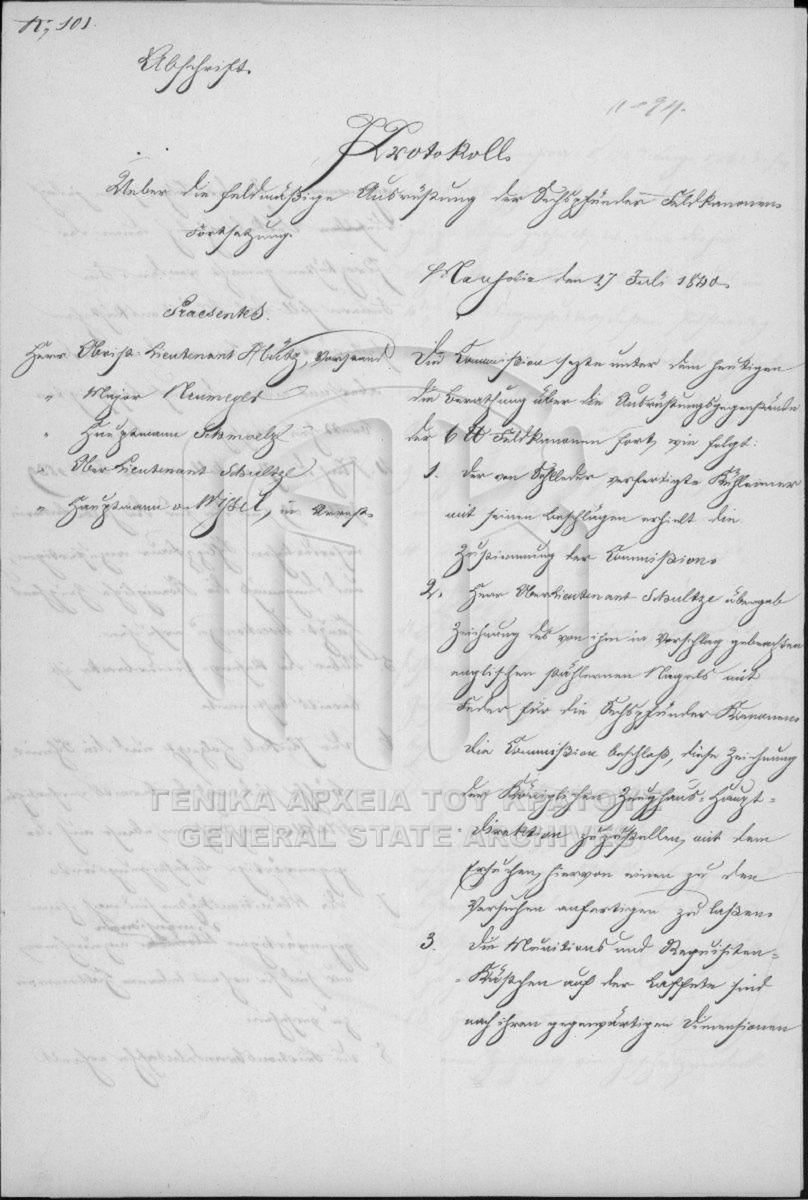 No 101.
Abschrift.
Protokoll
Ueber die feldmäßige Ausrüstung der Sechspfünder Feldkanonen
Fortsetzung.
Nauplia den 27 Juli 1840.
Praesentes.
Herr Obrist-Lieutenant Vorstand
" Major Neumeyer
" Hauptmann Schmoelzl
" Ober Lieutenant Schultze
" Hauptmann v.
Die Commission sezte unter dem heutigen
die Berathung über die Ausrüstungsgegenstände
der 6 ℔ Feldkanonen fort, wie folgt:
1. Der von Sohlleder verfertigte Kühleimer
mit seinen Beschlägen erhielt die
Zustimmung der Commission.
2. Herr OberLieutenant Schultze übergab
Zeichnung des von ihm in Vorschlag gebrachten
englischen stählernen Nagels mit
Feder für die Sechspfünder Kanonen
die Commission beschloß, diese Zeichnung
der Königlichen Zeughaus-Haupt-
Direktion zuzustellen, mit dem
Ersuchen, hiervon einen zu den
Versuchen anfertigen zu laßen.
3. Die Munitions und Requisiten-
Kästchen auf der Laffete sind
nach ihren gegenwärtigen Dimensionen
ΓΕΝΙΚΑ ΑΡΧΕΙΑ ΤΟΥ ΚΡΑΤΟΥΣ
GENERAL STATE ARCHIVES